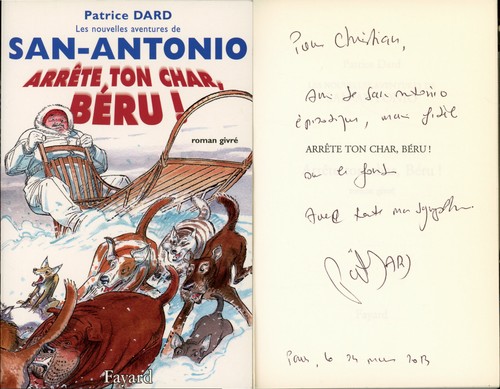 Patrice DARD
Les nouvelles aventures de
SAN-ANTONIO
ARRÊTE TON CHAR,
BÉRU !
roman givré
Fayard
Pour Christian,
Ami de San-Antonio
épisodique, mais fidèle
ARRÊTE TON CHAR, BÉRU !
Avec toute ma sympathie
DARD
Paris, le 24 mars 2013